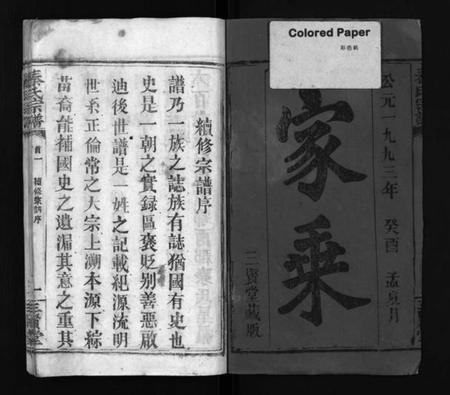 Colored Paper
彩色紙
公元一九九三年 癸酉 孟夏月
家乘
三賢堂藏版
續修宗譜序
譜乃一族之誌族有誌猶國有史也
史是一朝之實録區褒貶别善惡啟
迪後世譜是一姓之記載纪源流明
世系正倫常之大宗上溯本源下綜
苗裔能補國史之遺漏其意之重其
首一 續修宗譜序 一 三賢堂